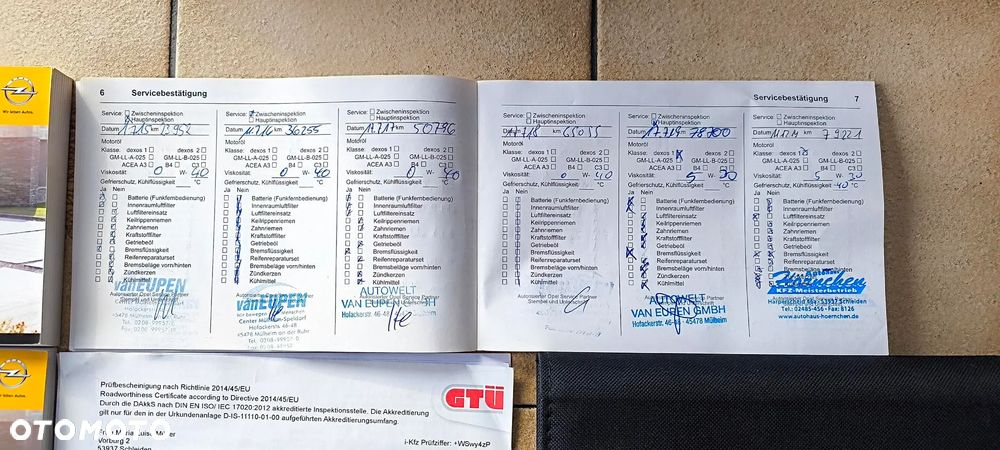 6 Servicebestätigung
Service: Zwischeninspektion
Hauptinspektion
Datum 1.7.15 km 13952
Motoröl
Klasse: dexos 1 dexos 2
GM-LL-A-025 GM-LL-B-025
ACEA A3 B4 C3
Viskosität: 0 W- 40
Gefrierschutz, Kühlflüssigk. °C
Ja Nein
Batterie (Funkfernbedienung)
Innenraumluftfilter
Luftfiltereinsatz
Keilrippenriemen
Zahnriemen
Kraftstofffilter
Getriebeöl
Bremsflüssigkeit
Reifenreparaturset
Bremsbeläge vorn/hinten
Zündkerzen
Kühlmittel
Autorisierter Opel Service Partner
Stempel und Unterschrift
van EUPEN
Service: Zwischeninspektion
Hauptinspektion
Datum 11.7.16 km 36255
Motoröl
Klasse: dexos 1 dexos 2
GM-LL-A-025 GM-LL-B-025
ACEA A3 B4 C3
Viskosität: 0 W- 40
Gefrierschutz, Kühlflüssigk. °C
Ja Nein
Batterie (Funkfernbedienung)
Innenraumluftfilter
Luftfiltereinsatz
Keilrippenriemen
Zahnriemen
Kraftstofffilter
Getriebeöl
Bremsflüssigkeit
Reifenreparaturset
Bremsbeläge vorn/hinten
Zündkerzen
Kühlmittel
van EUPEN
Center Mülheim-Speldorf
Hofackerstr. 46-48
45478 Mülheim an der Ruhr
Service: Zwischeninspektion
Hauptinspektion
Datum 11.7.17 km 50796
Motoröl
Klasse: dexos 1 dexos 2
GM-LL-A-025 GM-LL-B-025
ACEA A3 B4 C3
Viskosität: 0 W- 40
Gefrierschutz, Kühlflüssigk. °C
Ja Nein
Batterie (Funkfernbedienung)
Innenraumluftfilter
Luftfiltereinsatz
Keilrippenriemen
Zahnriemen
Kraftstofffilter
Getriebeöl
Bremsflüssigkeit
Reifenreparaturset
Bremsbeläge vorn/hinten
Zündkerzen
Kühlmittel
Autorisierter Opel Service Partner
AUTOWELT
VAN EUPEN
Hofackerstr. 46-48
Servicebestätigung 7
Service: Zwischeninspektion
Hauptinspektion
Datum km
Motoröl
Klasse: dexos 1 dexos 2
GM-LL-A-025 GM-LL-B-025
ACEA A3 B4 C3
Viskosität: 0 W- 40
Gefrierschutz, Kühlflüssigk. °C
Ja Nein
Batterie (Funkfernbedienung)
Innenraumluftfilter
Luftfiltereinsatz
Keilrippenriemen
Zahnriemen
Kraftstofffilter
Getriebeöl
Bremsflüssigkeit
Reifenreparaturset
Bremsbeläge vorn/hinten
Zündkerzen
Kühlmittel
Autorisierter Opel Service Partner
Stempel und Unterschrift
Service: Zwischeninspektion
Hauptinspektion
Datum km 78700
Motoröl
Klasse: dexos 1 dexos 2
GM-LL-A-025 GM-LL-B-025
ACEA A3 B4 C3
Viskosität: 5 W- 30
Gefrierschutz, Kühlflüssigk. °C
Ja Nein
Batterie (Funkfernbedienung)
Innenraumluftfilter
Luftfiltereinsatz
Keilrippenriemen
Zahnriemen
Kraftstofffilter
Getriebeöl
Bremsflüssigkeit
Reifenreparaturset
Bremsbeläge vorn/hinten
Zündkerzen
Kühlmittel
AUTOWELT
VAN EUPEN GMBH
Hofackerstr. 46-48 · 45478 Mülheim
Service: Zwischeninspektion
Hauptinspektion
Datum km 79221
Motoröl
Klasse: dexos 1 dexos 2
GM-LL-A-025 GM-LL-B-025
ACEA A3 B4 C3
Viskosität: 5 W- 30
Gefrierschutz, Kühlflüssigk. -40 °C
Ja Nein
Batterie (Funkfernbedienung)
Innenraumluftfilter
Luftfiltereinsatz
Keilrippenriemen
Zahnriemen
Kraftstofffilter
Getriebeöl
Bremsflüssigkeit
Reifenreparaturset
Bremsbeläge vorn/hinten
Zündkerzen
Kühlmittel
Autohaus
Hörnchen
KFZ-Meisterbetrieb
53937 Schleiden
Tel.: 02485-456 · Fax: 8126
www.autohaus-hoernchen.de
Prüfbescheinigung nach Richtlinie 2014/45/EU
Roadworthiness Certificate according to Directive 2014/45/EU
Durch die DAkkS nach DIN EN ISO/ IEC 17020:2012 akkreditierte Inspektionsstelle. Die Akkreditierung
gilt nur für den in der Urkundenanlage D-IS-11110-01-00 aufgeführten Akkreditierungsumfang.
GTÜ
Vorburg 2
53937 Schleiden
i-Kfz Prüfziffer: +WSwy4zP
OTOMOTO